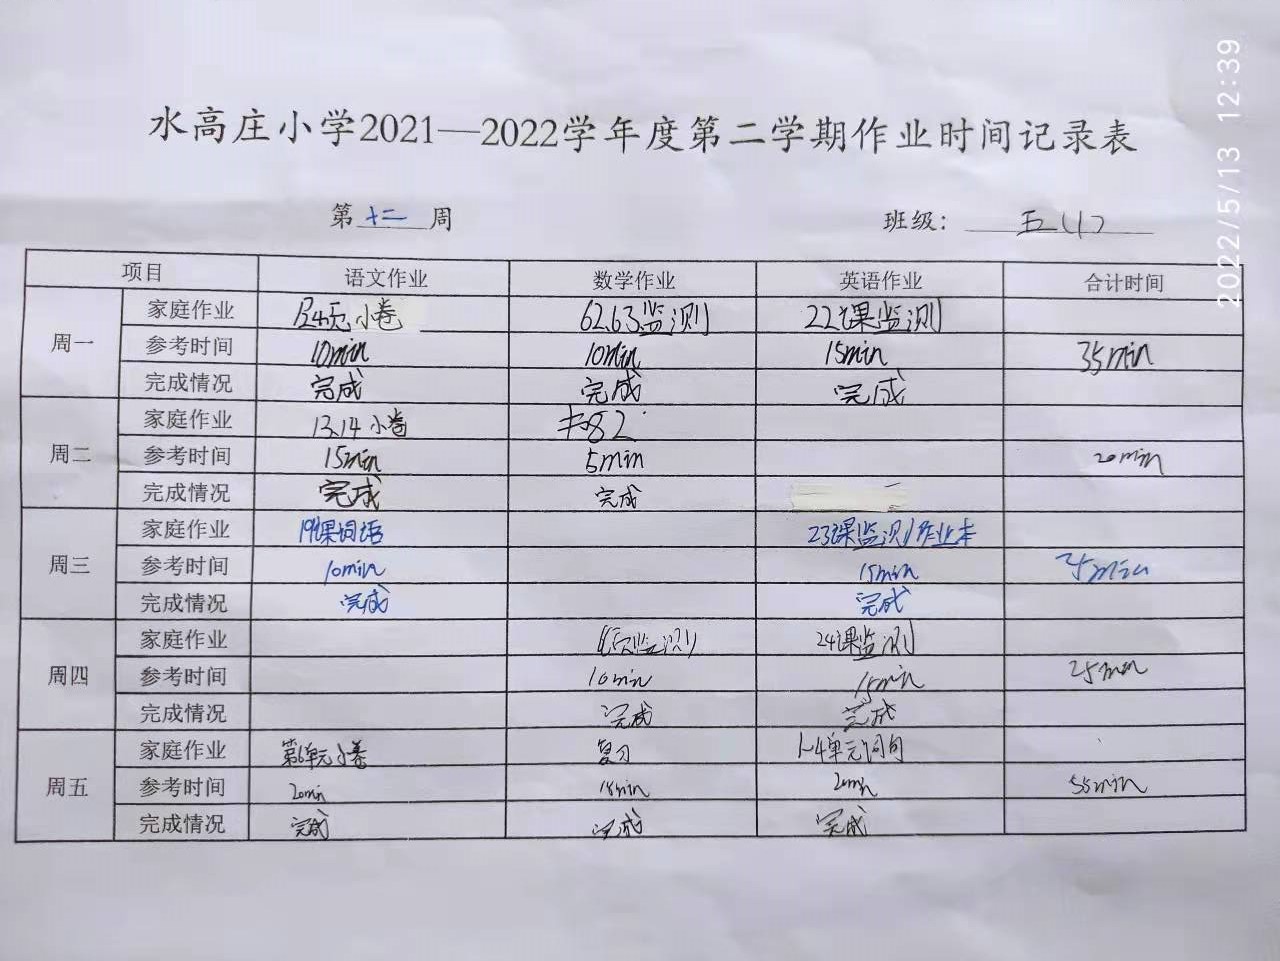 2022/5/13 12:39
水高庄小学2021—2022学年度第二学期作业时间记录表
第 十二 周 班级： 五(1)
项目 语文作业 数学作业 英语作业 合计时间
周一 家庭作业 小卷 62.63监测 22课监测
参考时间 10min 10min 15min 35min
完成情况 完成 完成 完成
周二 家庭作业 13.14小卷 82
参考时间 15min 5min 20min
完成情况 完成 完成
周三 家庭作业 19课词语 23课监测 作业本
参考时间 10min 15min 25min
完成情况 完成 完成
周四 家庭作业 监测 24课监测
参考时间 10min 15min 25min
完成情况 完成 完成
周五 家庭作业 第6单元小卷 复习 1~4单元词句
参考时间 20min 15min 20min 55min
完成情况 完成 完成 完成